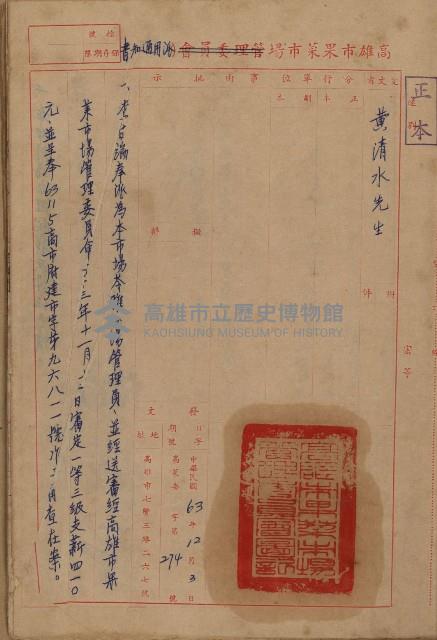 高雄市果菜市場管理委員會派用通知書
檔號
保存期限
正本
受文者
黃清水先生
行文單位
正本
副本
批示
擬辦
附件
發文
日期
中華民國63年12月3日
字號
高菜委字第274號
地址
高雄市七賢三路二六七號
高雄市立歷史博物館
KAOHSIUNG MUSEUM OF HISTORY
管理員、並經送審經高雄市果
菜市場管理委員會
三年十一月
日審定一等三級支薪四一〇
元、並呈奉63 11 5高市府建市字第九六八一一號
查在案。